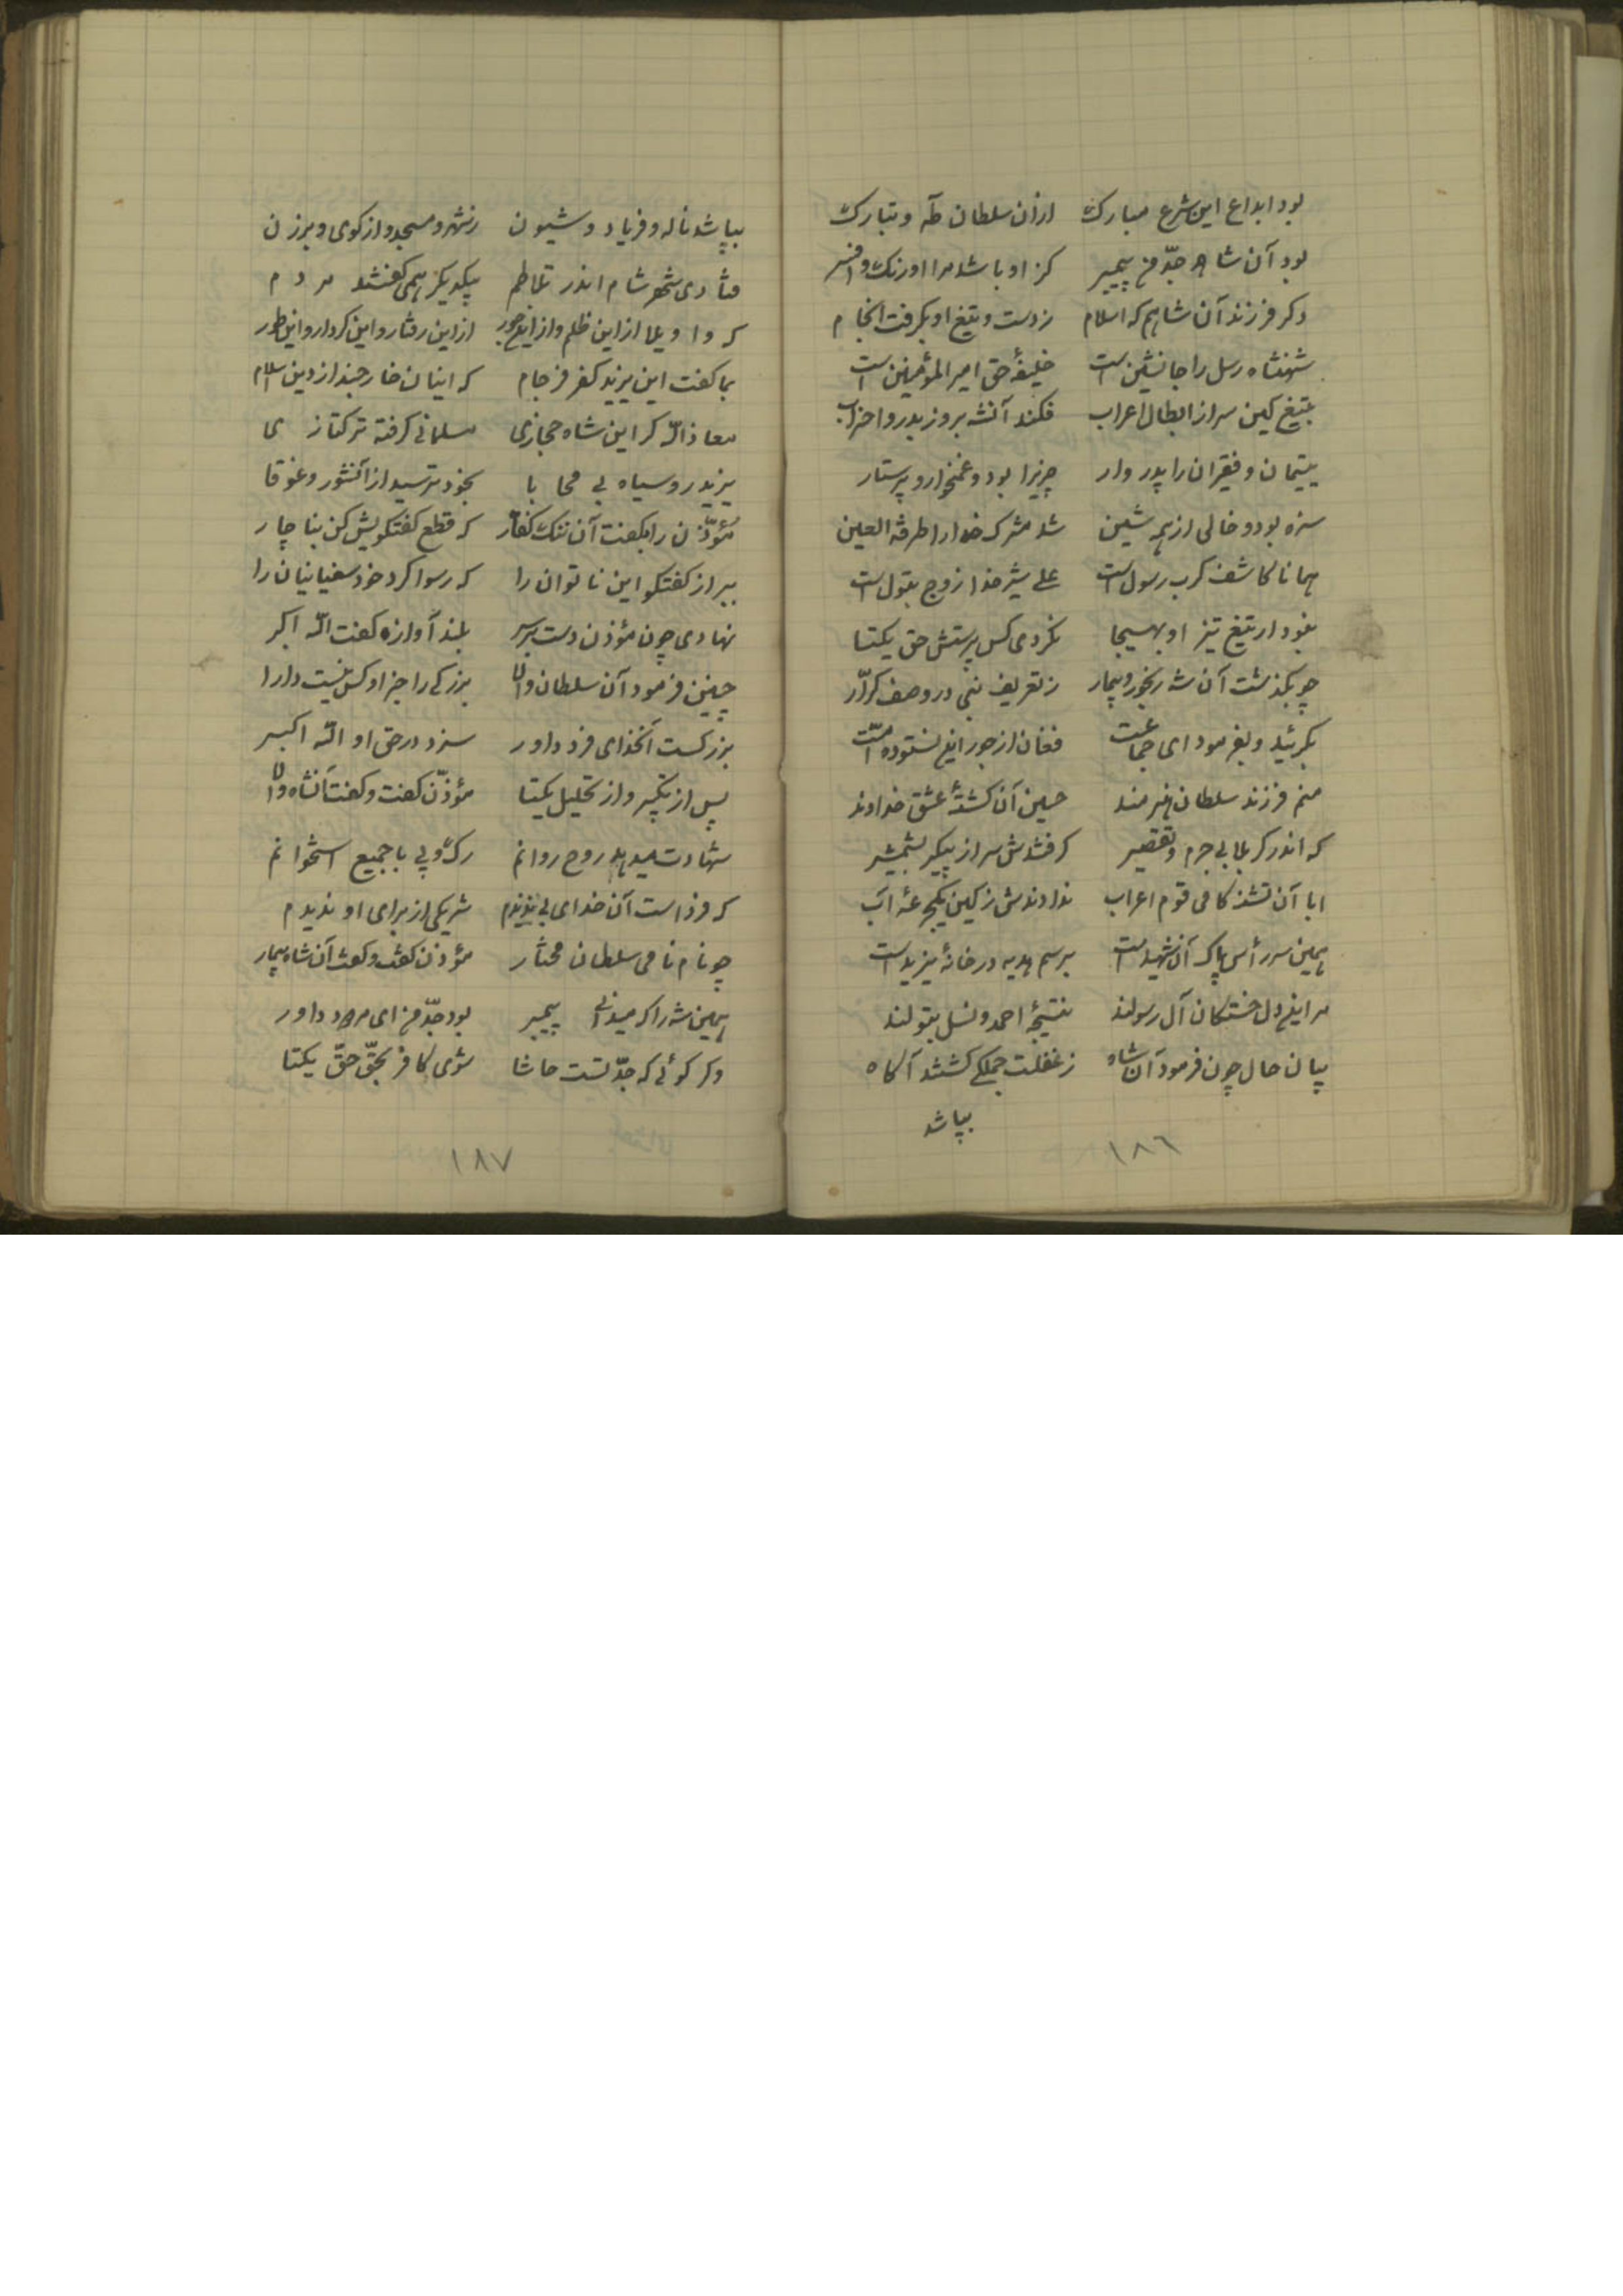 بود ابداع این شرع مبارک ازان سلطان طه و تبارک
بود آن شاه جدّ من پیمبر کز او باشد مرا اورنک و افسر
دکر فرزند آن شاهم که اسلام ز دست و تیغ او بکرفت انجام
شهنشاه رسل را جانشین است خلیفهٔ حق امیر المؤمنین است
بتیغ کین سر از ابطال اعراب فکند آنشه بروز بدر و احزاب
یتیمان و فقیران را پدر وار بود و غمخوار و پرستار
منزه بود و خالی از همه شین نشد مشرک خدا را طرفة العین
همانا کاشف کرب رسول است علی شیر خدا زوج بتول است
نبود ار تیغ تیز او بهیجا نکردی کس پرستش حق یکتا
چو بکذشت آن شه رنجور و بیمار ز تعریف نبی در وصف کرّار
بکریید و بفرمود ای جماعت فغان از جور این نستوده امّت
منم فرزند سلطان هنرمند حسین آن کشتهٔ عشق خداوند
که اندر کربلا بی جرم و تقصیر کرفتندش سر از پیکر بشمشیر
ابا آن تشنه کامی قوم اعراب ندادندش ز کین یکجرعهٔ آب
همین سر رأس پاک آن شهید است برسم هدیه در خانهٔ یزید است
مر این دل خستکان آل رسولند نتیجهٔ احمد و نسل بتولند
بیان حال چون فرمود آن شاه ز غفلت جملکی کشتند آکاه
بپا شد
۱۸۶
بپا شد ناله و فریاد و شیون ز شهر و مسجد و از کوی و برزن
فتادی شهر شام اندر تلاطم بیکدیکر همی کفتند مردم
که وا ویلا از این ظلم و از این جور از این رفتار و این کردار و این طور
بما کفت این یزید کفر فرجام که اینان خارجند از دین اسلام
معاذالله کر این شاه حجازی مسلمانی کرفته ترکتازی
یزید رو سیاه بی محابا بخود ترسید از آنشور و غوقا
مؤذّن را بکفت آن ننک کفّار که قطع کفتکویش کن بناچار
ببر از کفتکو این ناتوان را که رسوا کرد خود سفیانیان را
نهادی چون مؤذن دست بر سر بلند آوازه کفت الله اکبر
چنین فرمود آن سلطان والا بزرکی را جز او کس نیست دارا
بزرکست آنخدای فرد داور سزد در حق او الله اکبر
پس از تکبیر و از تحلیل یکتا مؤذّن کفت و کفت آنشاه والا
شهادت میدهد روح روانم رک و پی با جمیع استخوانم
که فرد است آن خدای بی ندیدم شریکی از برای او ندیدم
چو نام نامی سلطان مختار مؤذن کفت و کفت آن شاه بیمار
همین شه را که میدانی پیمبر بود جدّ من ای مردود داور
وکر کوئی که جدّ تست حاشا شوی کافر بحقّ حقّ یکتا
۱۸۷